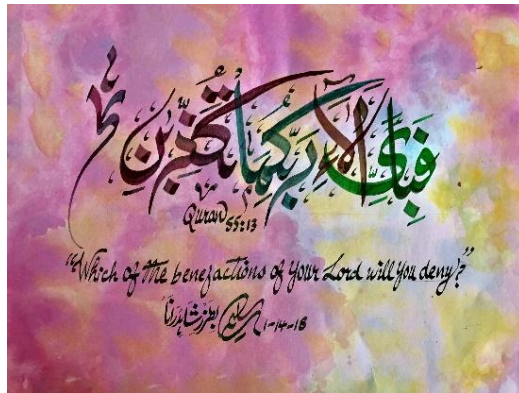 فَبِأَيِّ آلَاءِ رَبِّكُمَا تُكَذِّبَانِ
Quran 55:13
"Which of the benefactions of your Lord will you deny!?"
1-14-16